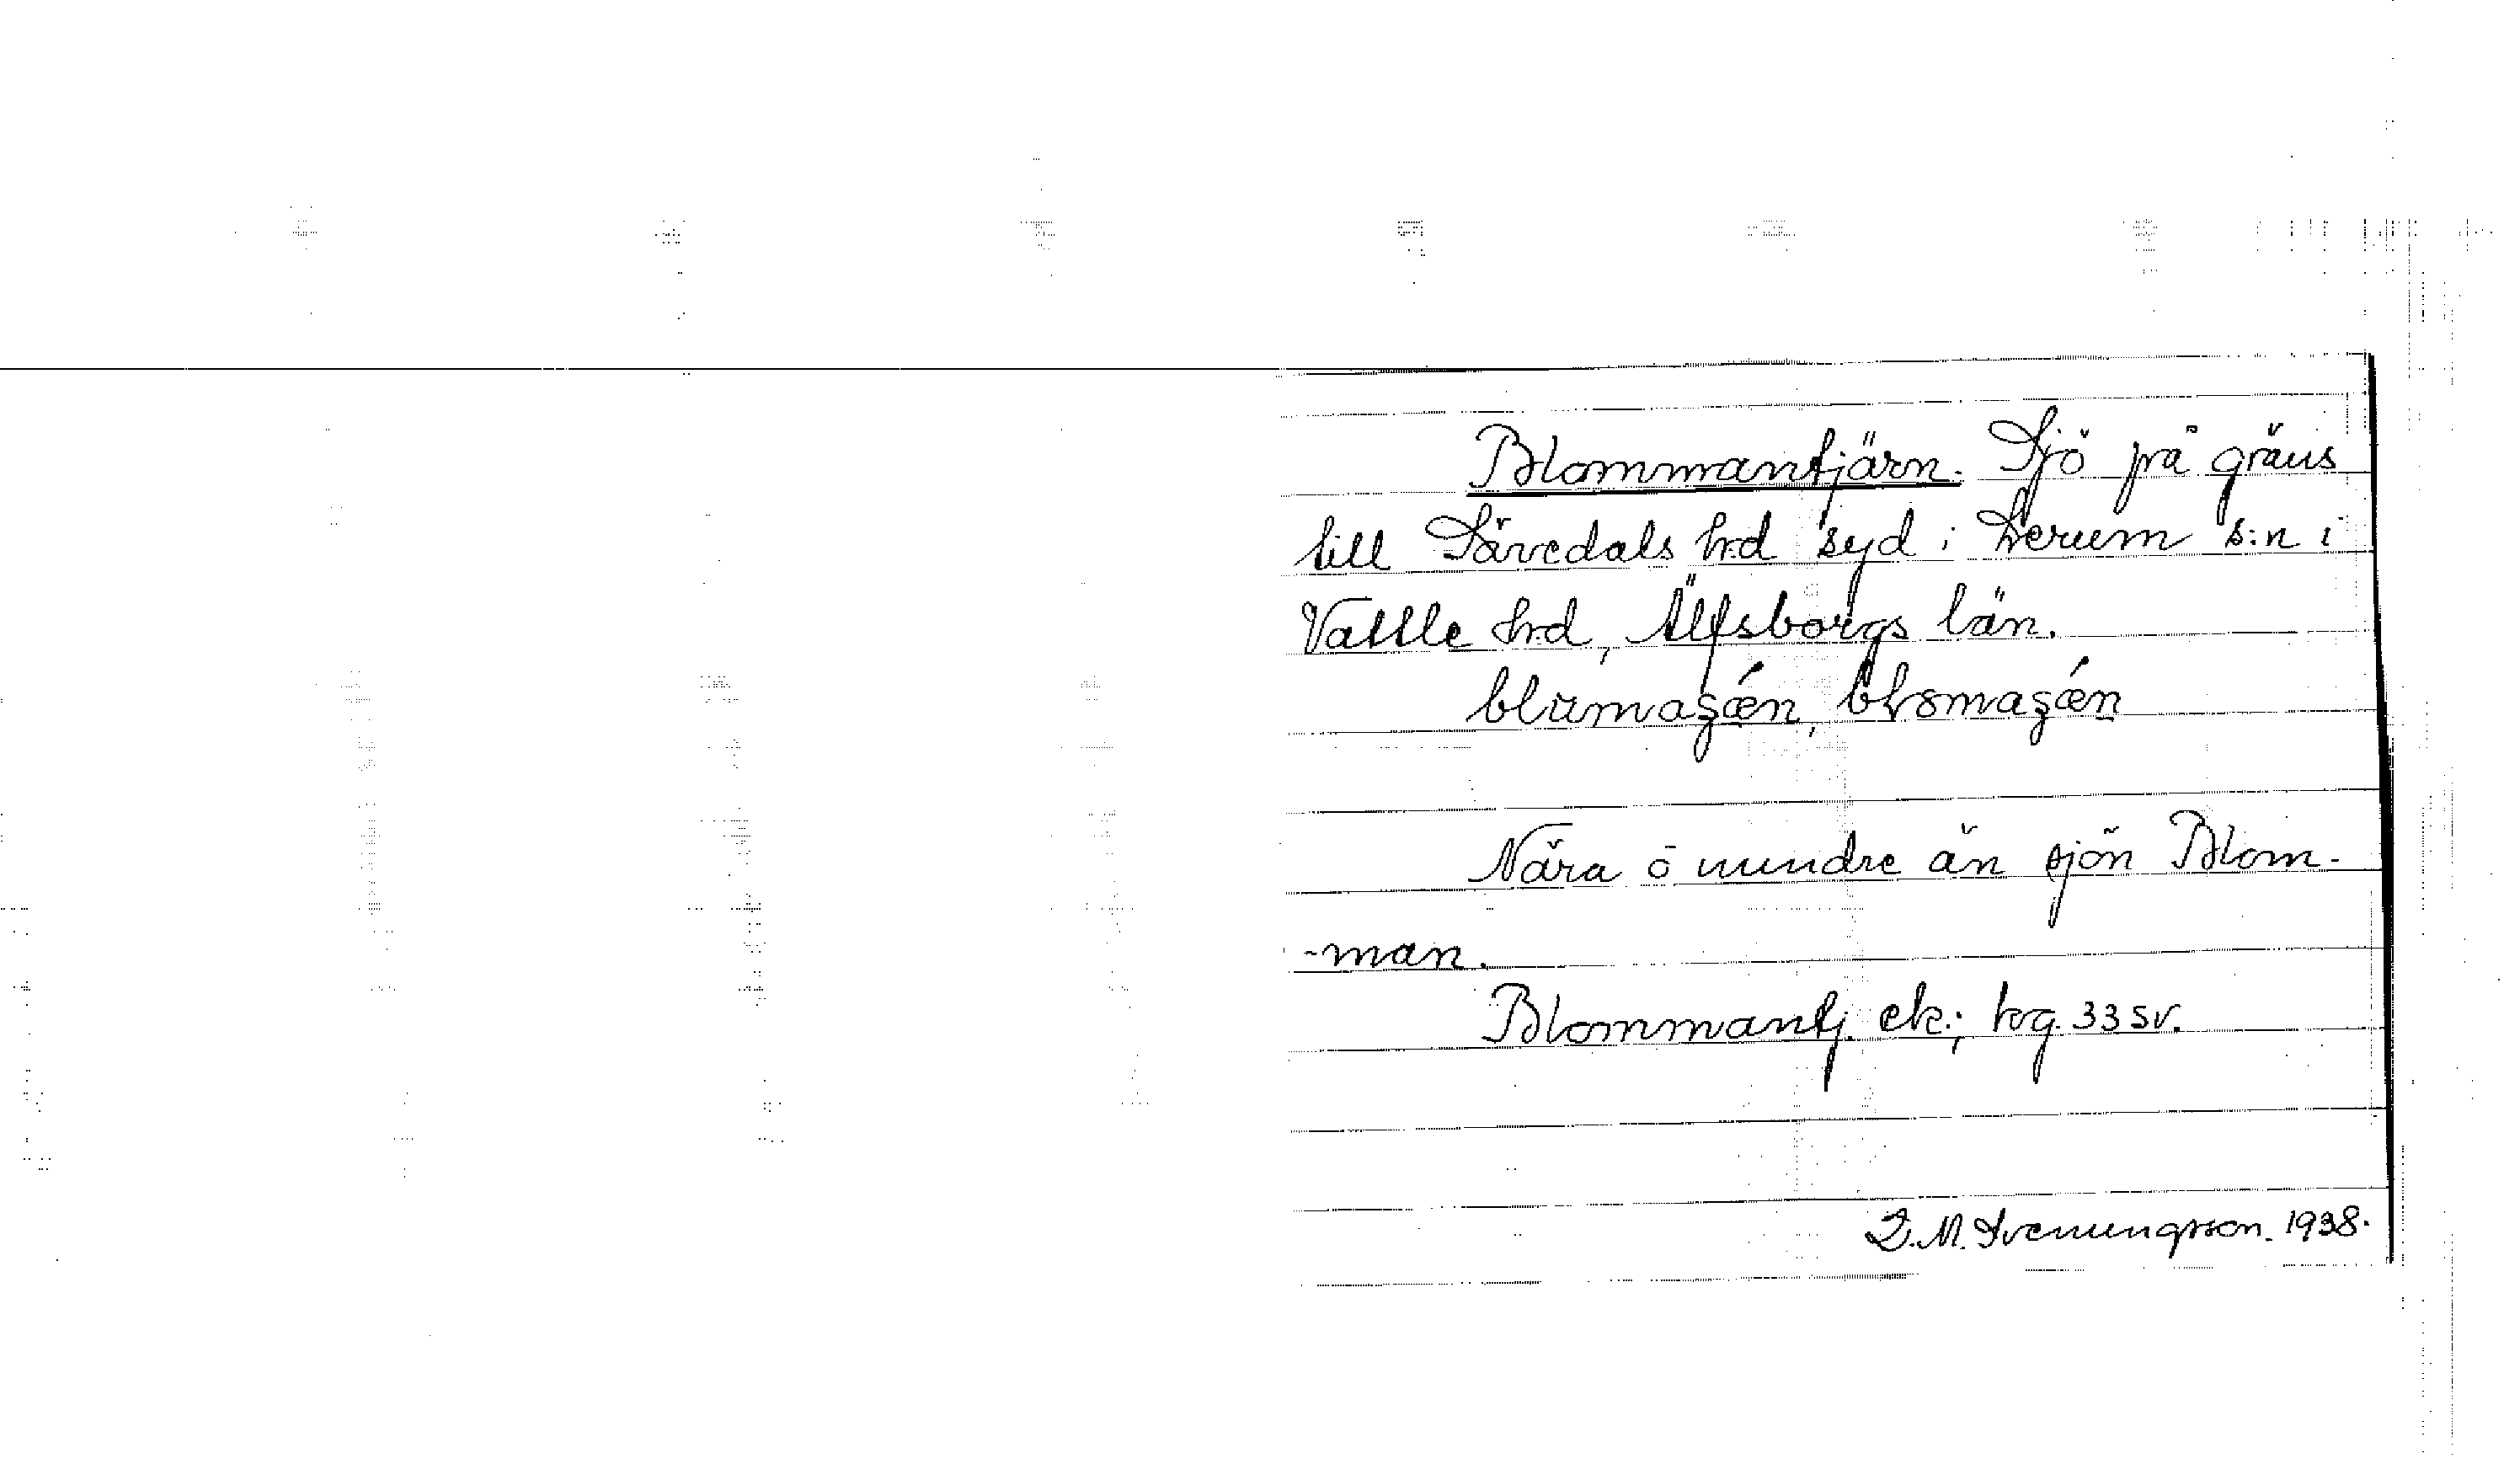 Blommantjärn. Sjö på gräns
till Sävedals h:d syd i Lerum s:n i
Vättle h:d, Älfsborgs län.
Nära ö mindre än sjön Blom-
-man.
Blommantj. ek.; kg. 33 sv.
D.M. Svenungsson. 1938.